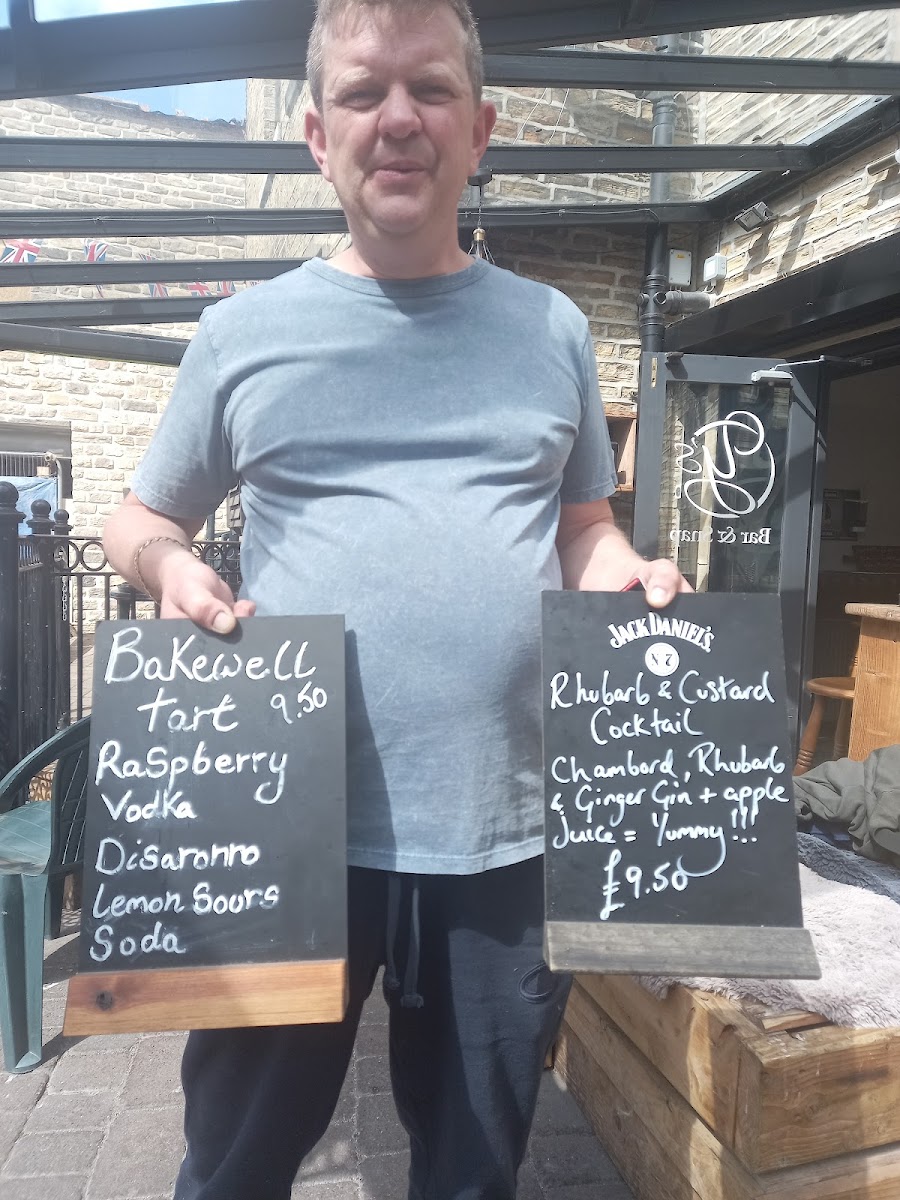 Bakewell
tart 9.50
Raspberry
Vodka
Disaronno
Lemon Sours
Soda
JACK DANIEL'S
Nº7
Rhubarb & Custard
Cocktail
Chambord, Rhubarb
& Ginger Gin + apple
Juice = Yummy!!!
£9.50
Bar & Snap